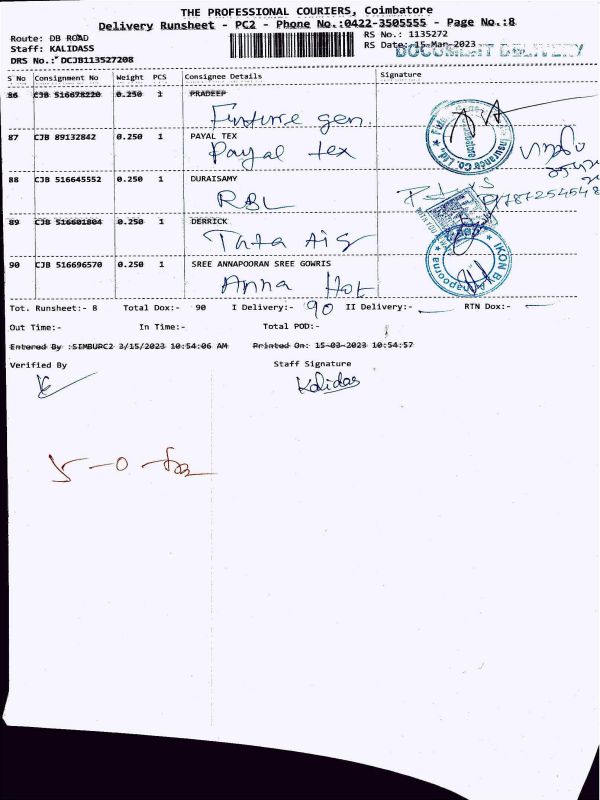 THE PROFESSIONAL COURIERS, Coimbatore
Delivery Runsheet - PC2 - Phone No.:0422-3505555 - Page No.:8
Route: DB ROAD
RS No.: 1135272
Staff: KALIDASS
RS Date: 15-Mar-2023
DOCUMENT DELIVERY
DRS No.: DCJB113527208
S No Consignment No Weight PCS Consignee Details Signature
86 CJB 516678220 0.250 1 PRADEEP
Future gen.
87 CJB 89132842 0.250 1 PAYAL TEX
Payal tex
88 CJB 516645552 0.250 1 DURAISAMY
RBL
89 CJB 516601804 0.250 1 DERRICK
Tata Aig
90 CJB 516696570 0.250 1 SREE ANNAPOORAN SREE GOWRIS
Anna Hot
Tot. Runsheet:- 8 Total Dox:- 90 I Delivery:- 90 II Delivery:- RTN Dox:-
Out Time:- In Time:- Total POD:-
Entered By :SIMBUPC2 3/15/2023 10:54:06 AM Printed On: 15-03-2023 10:54:57
Verified By Staff Signature
Kalidas